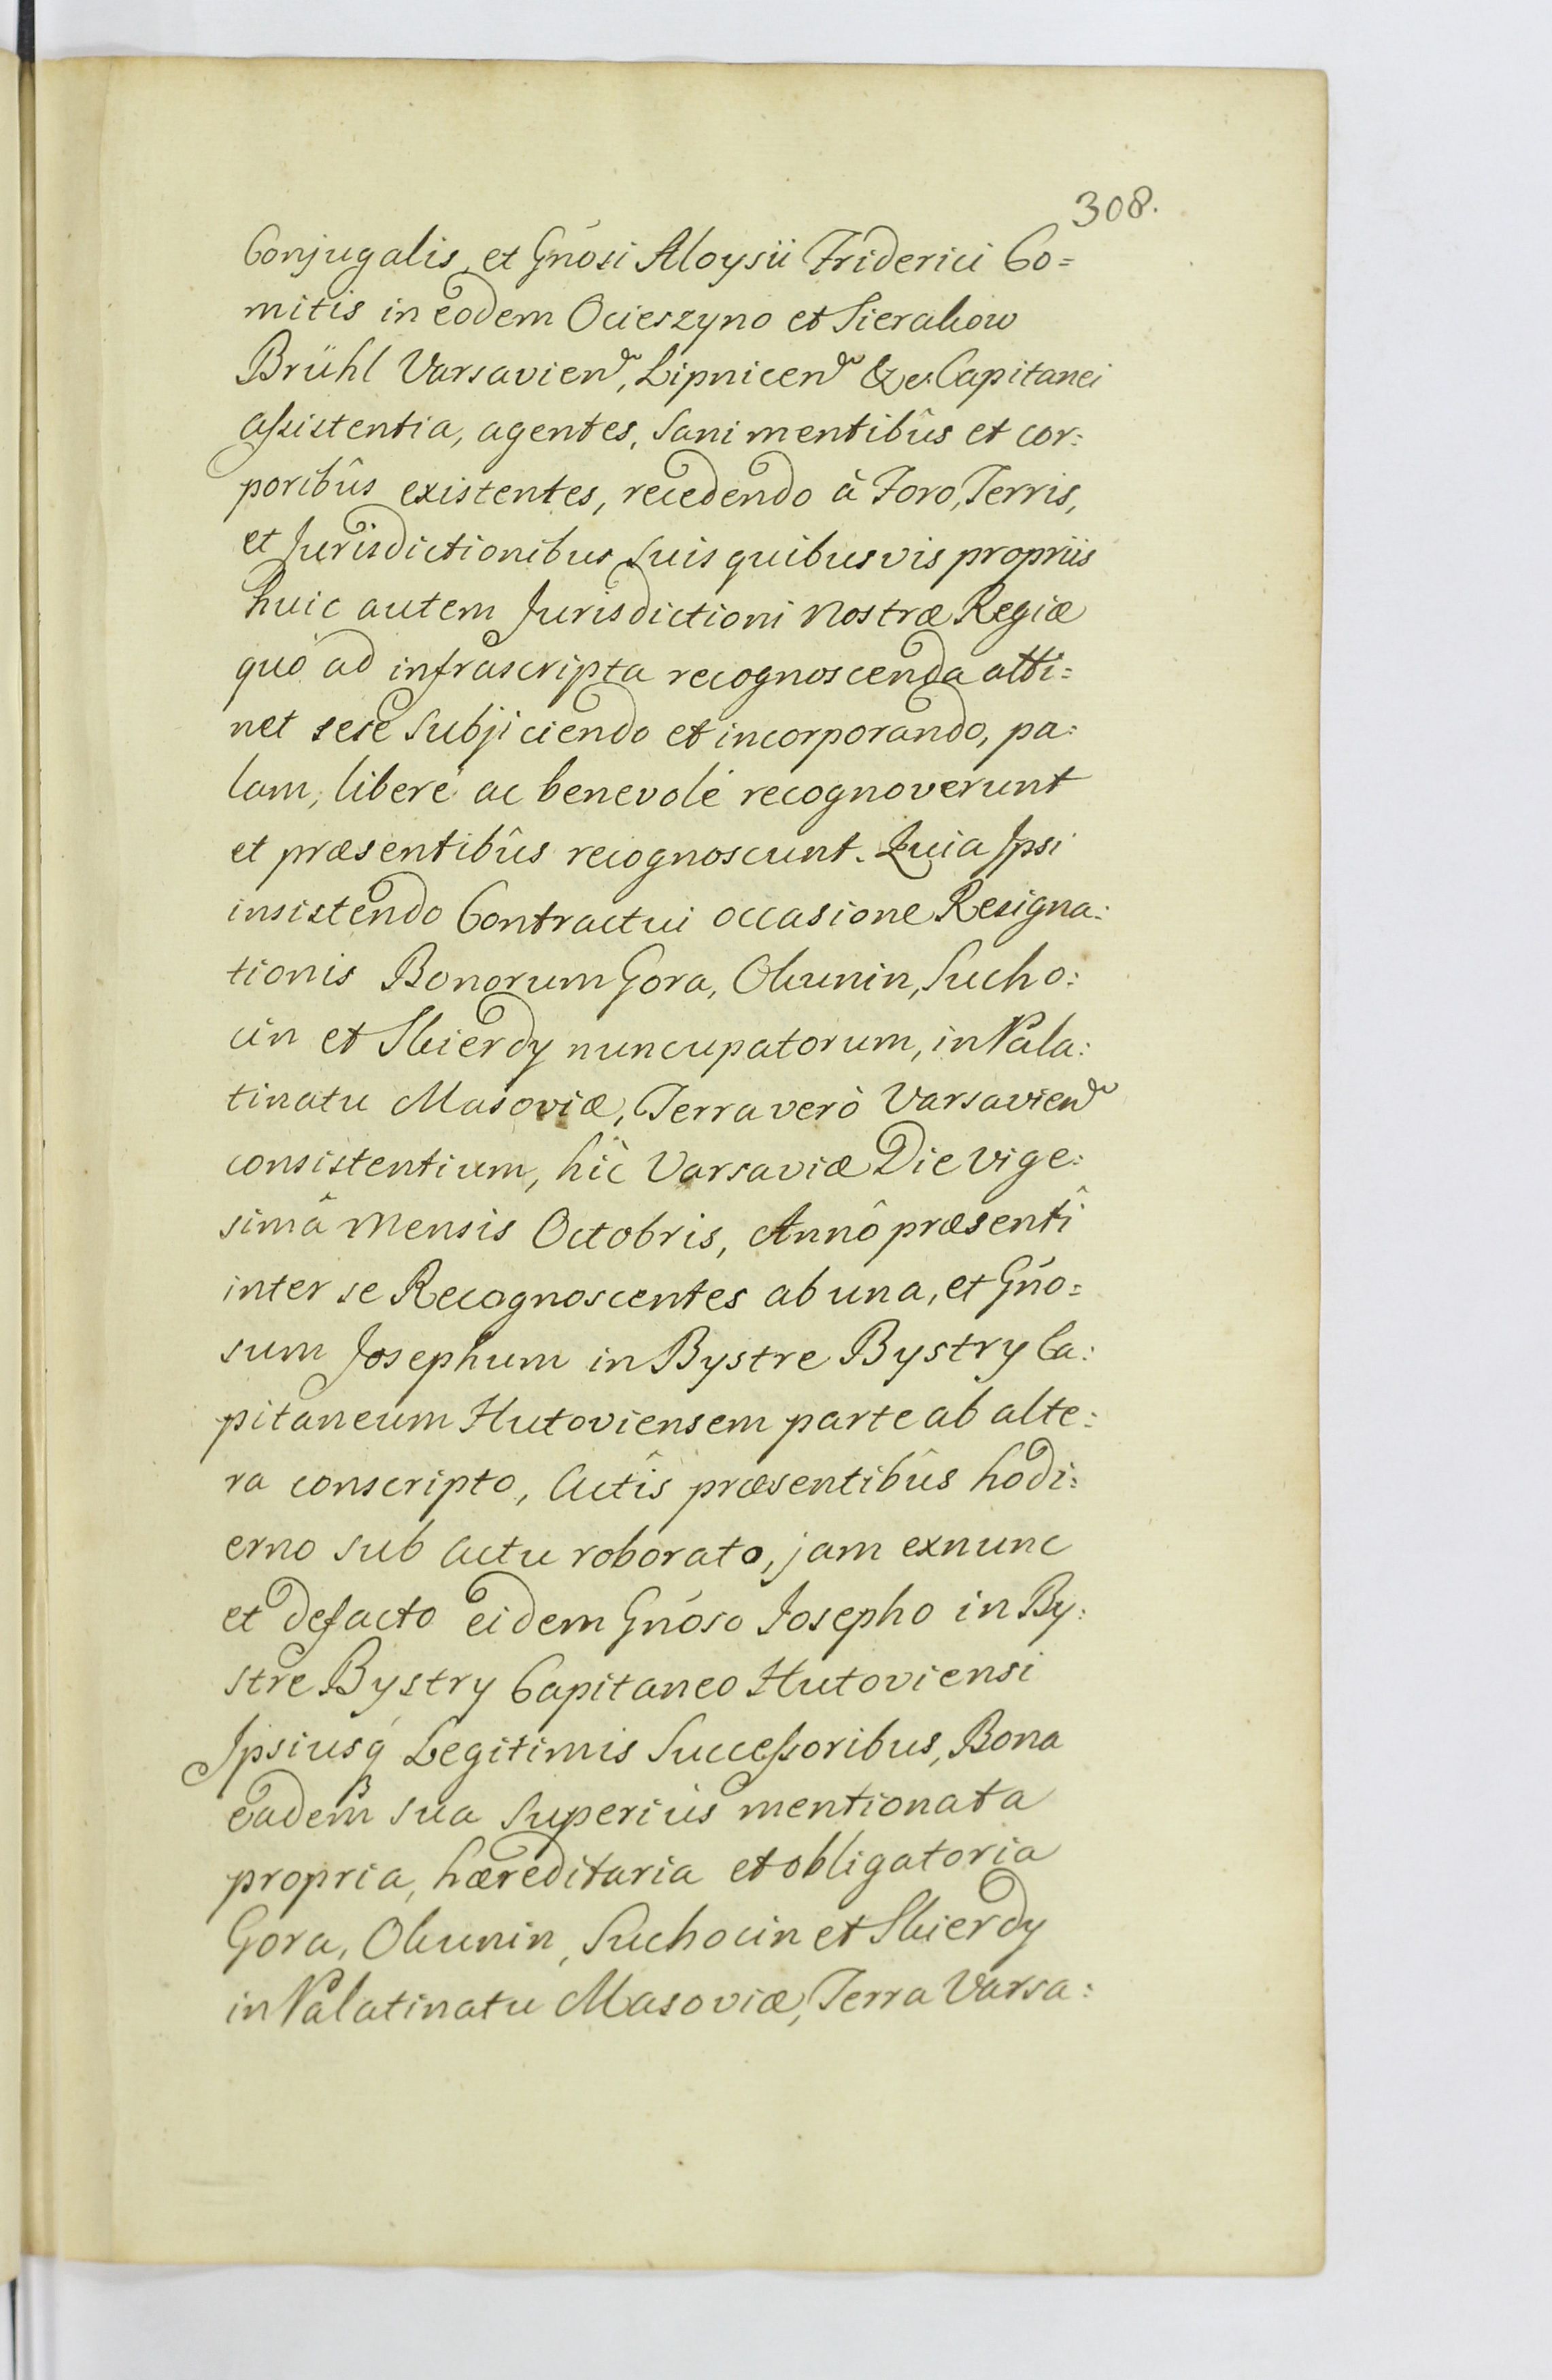 308.
Conjugalis, et Gnosi Aloysii Friderici Co=
mitis in eodem Ocieszyno et Sierakow
Brühl Varsavien, Lipnicen &c. Capitanei
assistentia, agentes, sani mentibûs et cor:
poribûs existentes, recedendo à Foro, Terris,
et Jurisdictionibus suis quibusvis propriis
huic autem Jurisdictioni nostræ Regiæ
quó ad infrascripta recognoscenda atti=
net sese subjiciendo et incorporando, pa:
lam, liberé ac benevolé recognoverunt
et præsentibûs recognoscunt. Quia Ipsi
insistendo Contractui occasione Resigna:
tionis Bonorum Gora, Okunin, Sucho:
cin et Skierdy nuncupatorum, in Pala:
tinatu Masoviæ, Terra verò Varsavien
consistentium, hîc Varsaviæ Die Vige:
simâ Mensis Octobris, Annô præsentî
inter se Recognoscentes ab una, et Gño=
sum Josephum in Bystre Bystry Ca:
pitaneum Hutoviensem parte ab alte:
ra conscripto, Actîs præsentibûs hodi:
erno sub actu roborato, jam exnunc
et defacto eidem Gnóso Josepho in By:
stre Bystry Capitaneo Hutoviensi
Ipsiusq́ Legitimis Successoribus, Bona
eadem sua superiùs mentionata
propria, hæreditaria et obligatoria
Gora, Okunin, Suchocin et Skierdy
in Palatinatu Masoviæ, Terra Varsa: